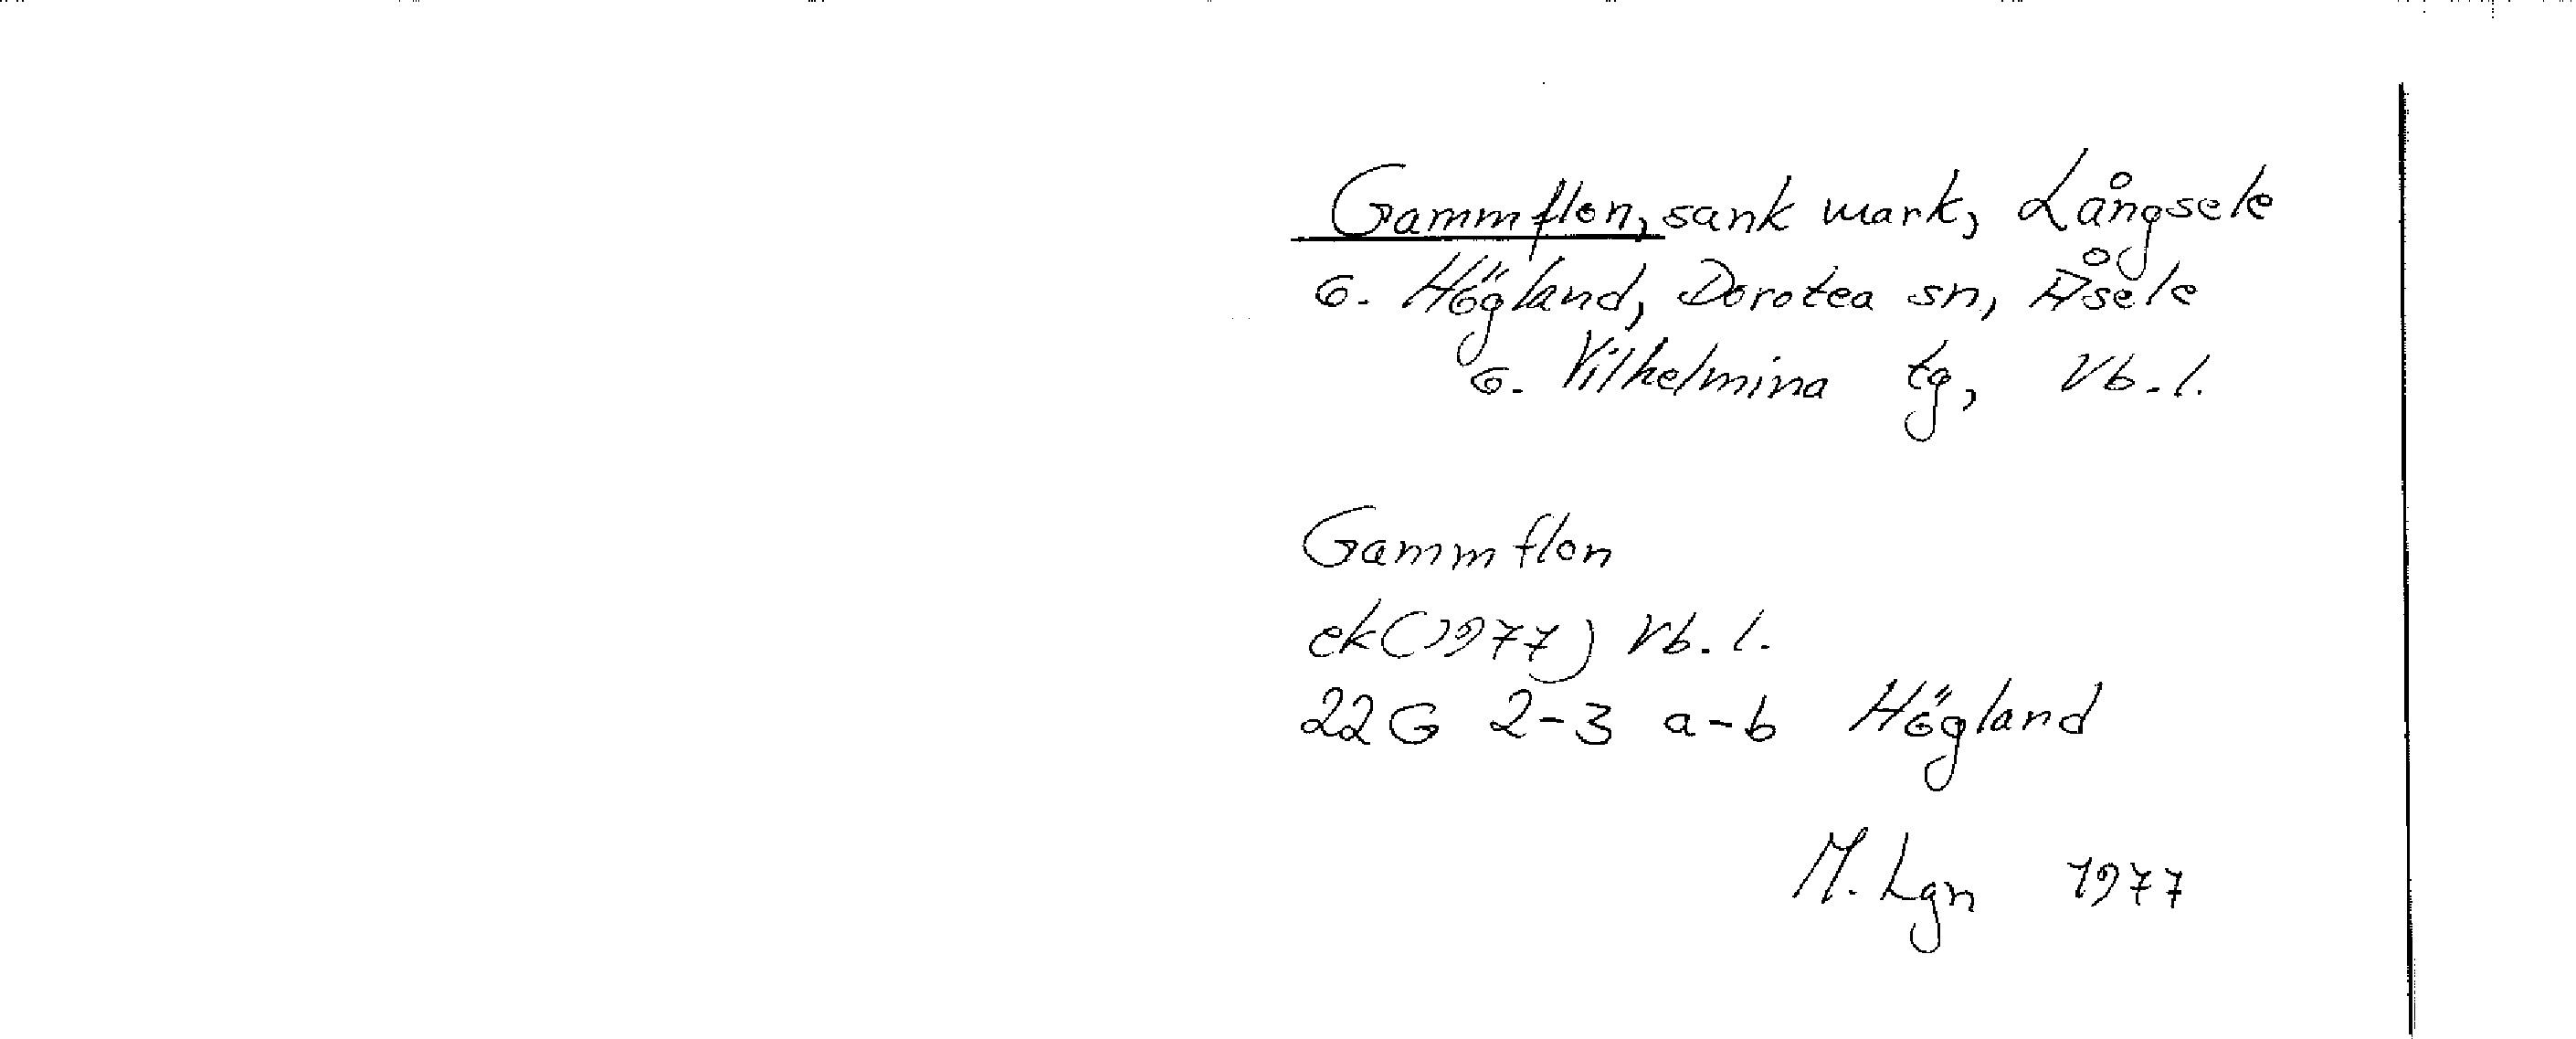 Gammflon, sank mark, Långsele
o. Högland, Dorotea sn, Åsele
o. Vilhelmina tg, Vb. l.
Gammflon
ek (1977) Vb. l.
22 G 2-3 a-b Högland
M. Lgn 1977